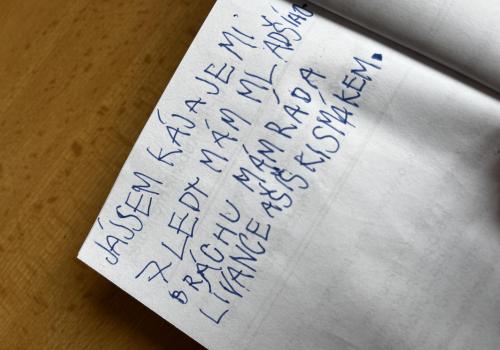 JÁJSEM KÁJA JE MI
7 LEDY MÁM MLADŠÍHO
BRÁCHU MÁM RÁDA
LÍVANCE AŠIŠKISMÁKEM.